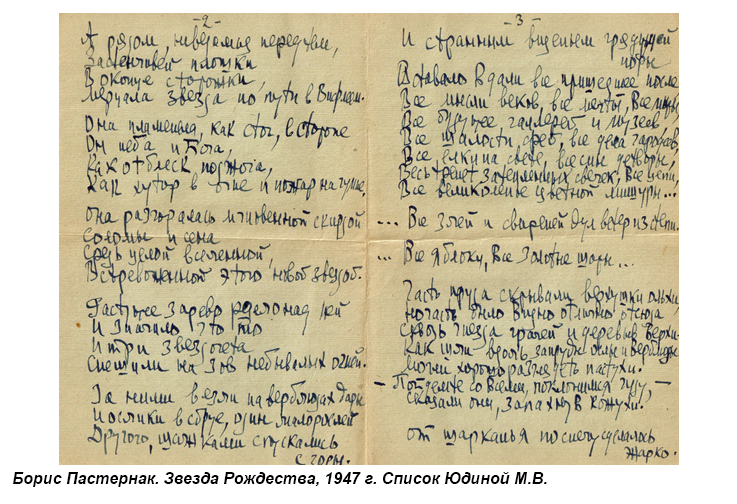 -2-
А рядом, неведомая перед тем,
Застенчивей плошки
В оконце сторожки,
Мерцала звезда по пути в Вифлеем.
Она пламенела, как стог, в стороне
От неба и Бога,
Как отблеск поджога,
Как хутор в огне и пожар на гумне.
Она разгоралась мгновенной скирдой
Соломы и сена
Средь целой вселенной,
Встревоженной этою новой звездой.
Растущее зарево рдело над ней
И значило что-то
И три звездочета
Спешили на зов небывалых огней.
За ними везли на верблюдах дары
И ослики в сбруе, один малорослей
Другого, шажками спускались
с горы.
-3-
И странным виденьем грядущей
поры
Вставало вдали все пришедшее после
Все мысли веков, все мечты, все миры,
Все будущее галлерей и музеев
Все шалости фей, все дела чародеев,
Все елки на свете, все сны детворы,
Весь трепет затепленных свечек, все цепи,
Все великолепье цветной мишуры...
... Все злей и свирепей дул ветер из степи.
... Все яблоки, все золотые шары...
Часть пруда скрывали верхушки ольхи,
Но часть было видно отлично отсюда
Сквозь гнезда грачей и деревьев верхи.
Как шли вдоль запруды ослы и верблюды
Могли хорошо разглядеть пастухи.
— Пойдемте со всеми, поклонимся чуду, —
Сказали они, запахнув кожухи.
От шарканья по снегу сделалось
жарко.
Борис Пастернак. Звезда Рождества, 1947 г. Список Юдиной М.В.